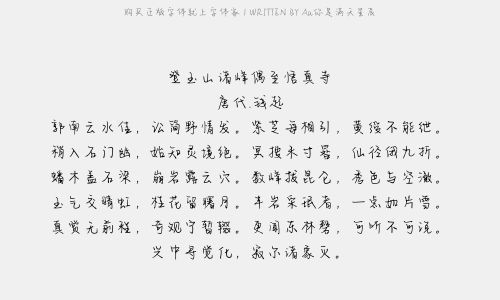 购买正版字体就上字体家 | WRITTEN BY Aa你是满天星辰
登玉山诸峰偶至悟真寺
唐代.钱起
郭南云水佳，讼简野情发。紫芝每相引，黄绶不能绁。
稍入石门幽，始知灵境绝。冥搜未寸晷，仙径俄九折。
蟠木盖石梁，崩岩露云穴。数峰拔昆仑，秀色与空澈。
玉气交晴虹，桂花留曙月。半岩采珉者，一点如片雪。
真赏无前程，奇观宁暂辍。更闻东林磬，可听不可说。
兴中寻觉化，寂尔诸象灭。